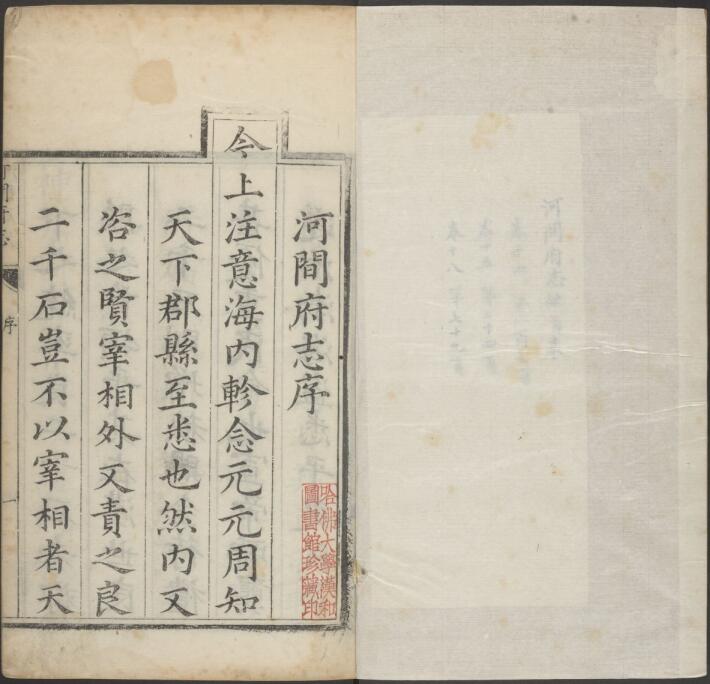 河間府志序
今上注意海内軫念元元周知
天下郡縣至悉也然内又
咨之賢宰相外又責之良
二千石豈不以宰相者天
哈佛大學漢和
圖書館珍藏印
序
一